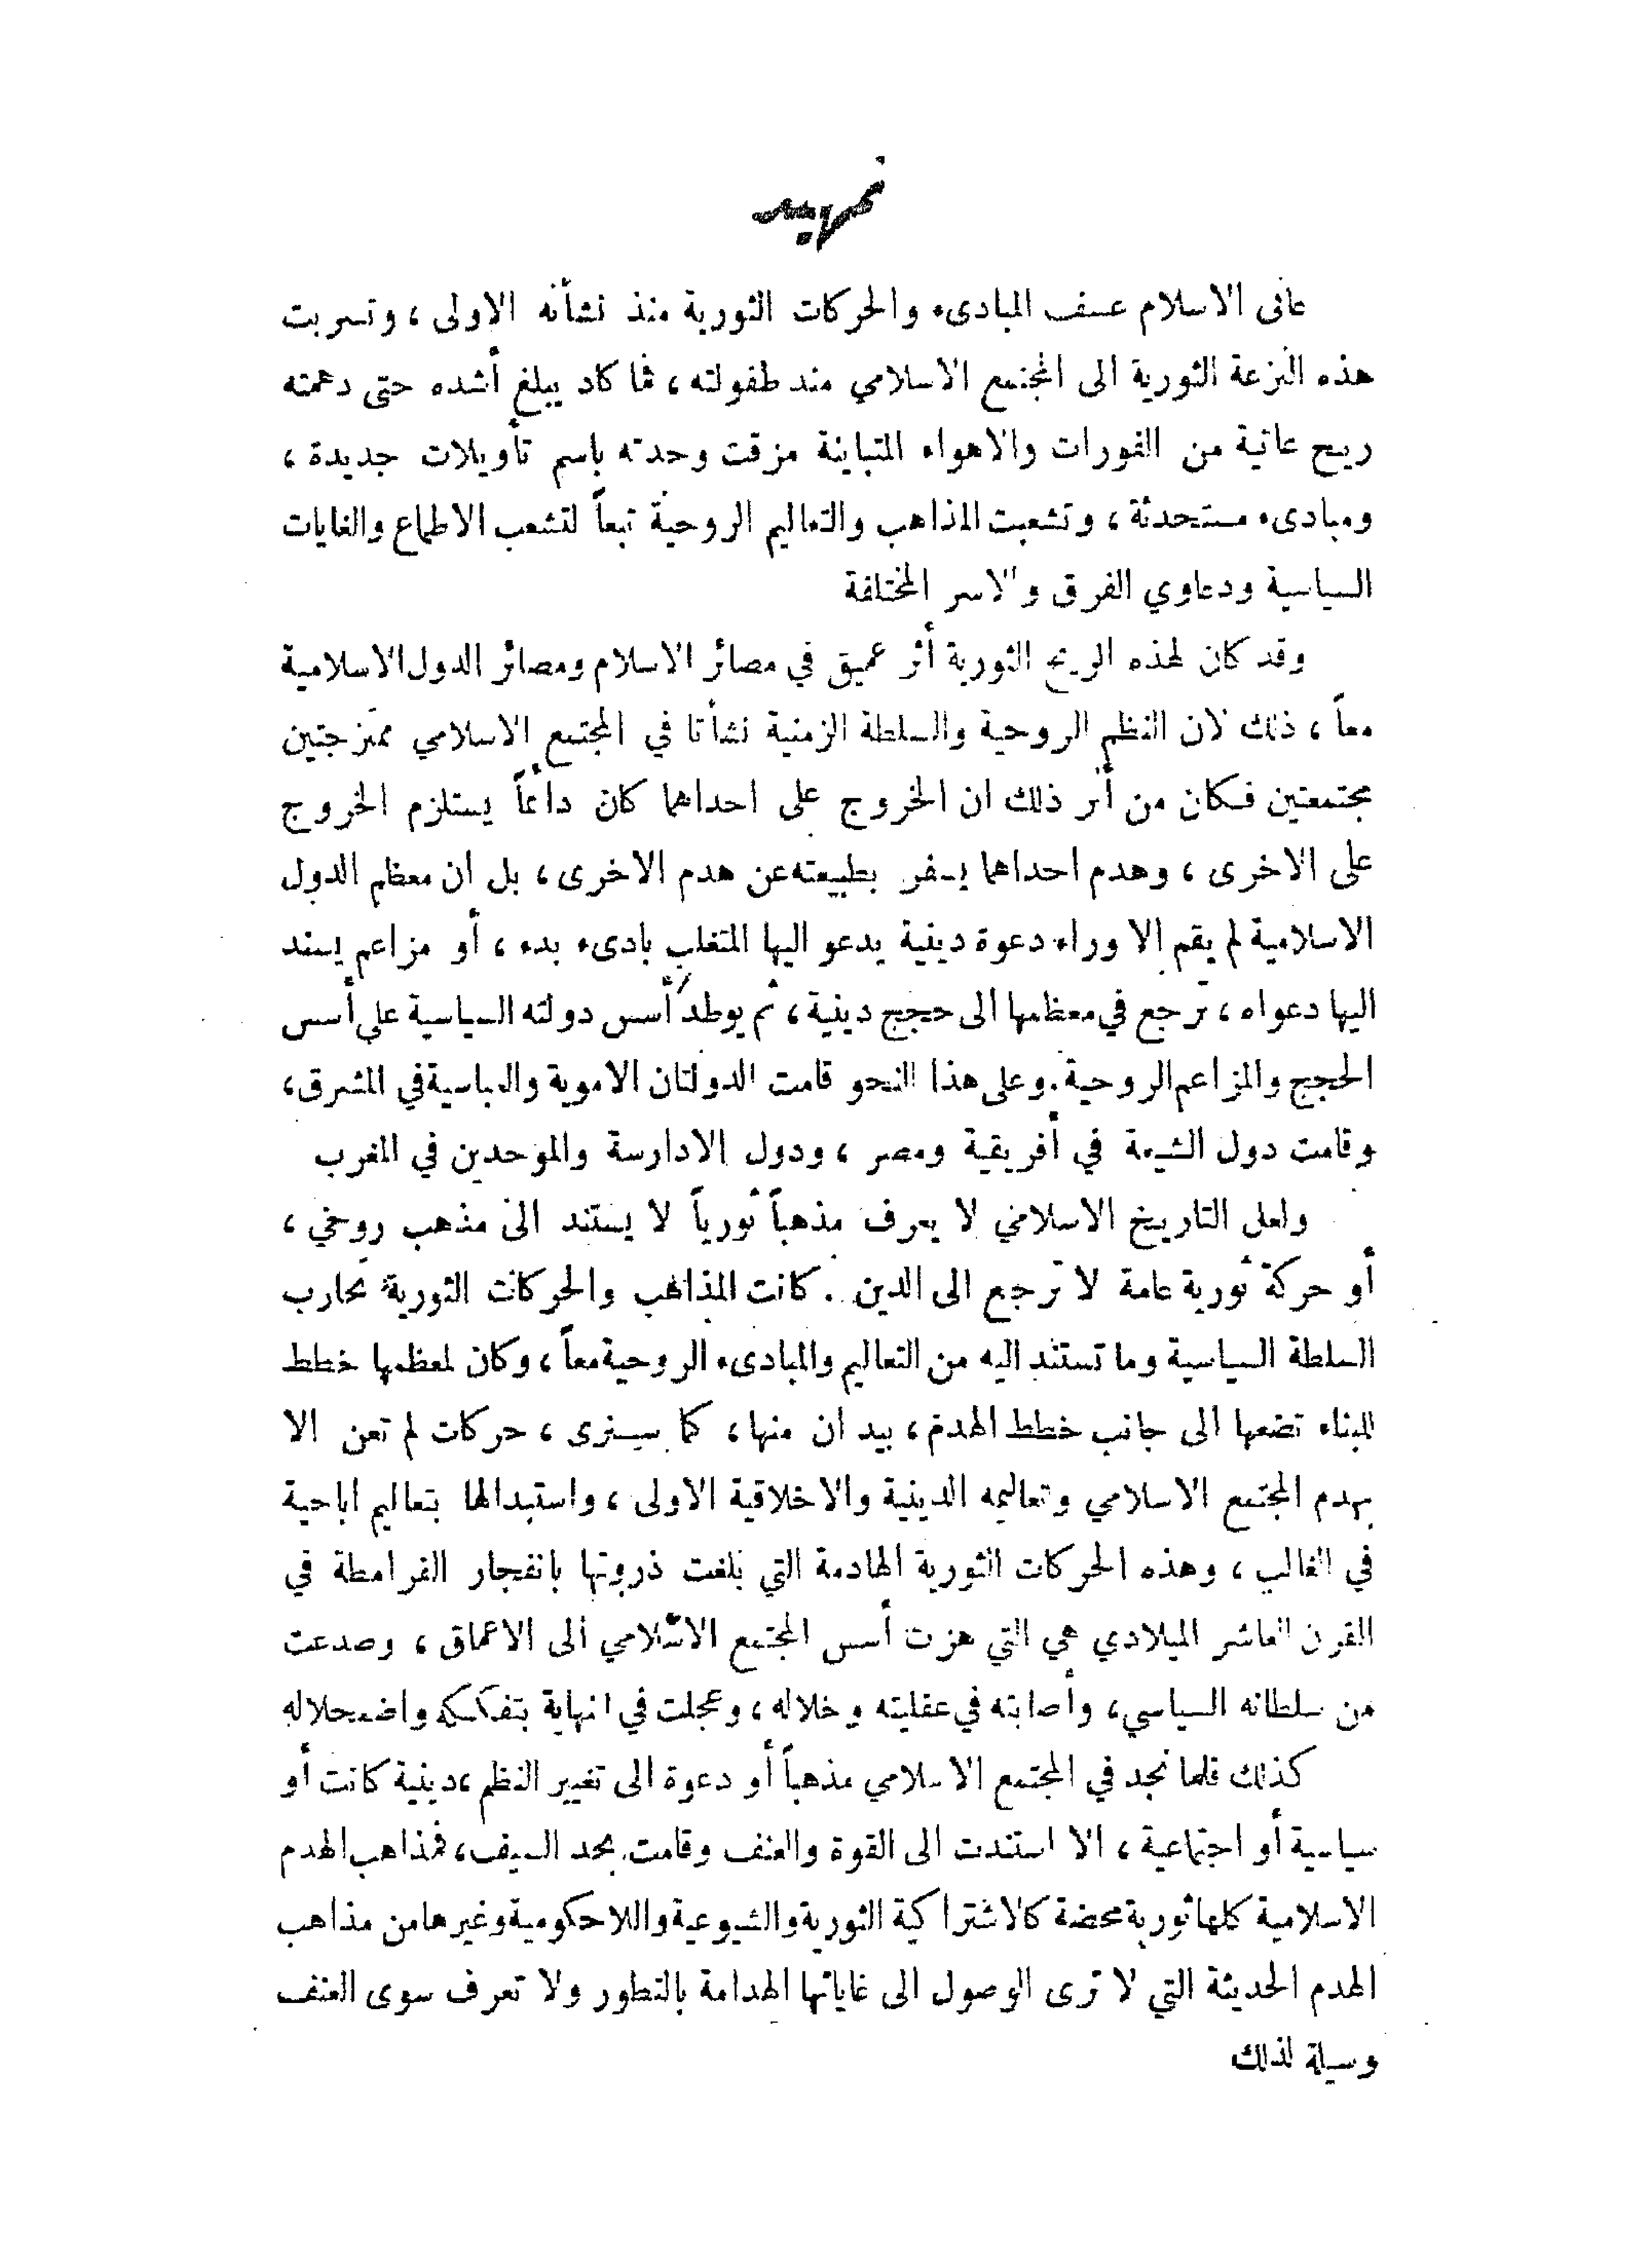 تمهيد
عانى الاسلام عسف المبادىء والحركات الثورية منذ نشأته الاولى ، وتسربت
هذه النزعة الثورية الى المجتمع الاسلامي منذ طفولته ، فما كاد يبلغ أشده حتى دهمته
ريح عاتية من الثورات والاهواء المتباينة مزقت وحدته باسم تأويلات جديدة ،
ومبادىء مستحدثة ، وتشعبت المذاهب والتعاليم الروحية تبعاً لتشعب الاطماع والغايات
السياسية ودعاوي الفرق والاسر المختلفة
وقد كان لهذه الريح الثورية أثر عميق في مصائر الاسلام ومصائر الدول الاسلامية
معاً ، ذلك لان النظم الروحية والسلطة الزمنية نشأتا في المجتمع الاسلامي ممتزجتين
مجتمعتين فكان من أثر ذلك ان الخروج على احداهما كان دائماً يستلزم الخروج
على الاخرى ، وهدم احداهما يسفر بطبيعته عن هدم الاخرى ، بل ان معظم الدول
الاسلامية لم يقم الا وراء دعوة دينية يدعو اليها المتغلب بادىء بدء ، أو مزاعم يسند
اليها دعواه ، ترجع في معظمها الى حجج دينية ، ثم يوطد أسس دولته السياسية على أسس
الحجج والمزاعم الروحية . وعلى هذا النحو قامت الدولتان الاموية والعباسية في المشرق ،
وقامت دول الشيعة في أفريقية ومصر ، ودول الادارسة والموحدين في المغرب
ولعل التاريخ الاسلامي لا يعرف مذهباً ثورياً لا يستند الى مذهب روحي ،
أو حركة ثورية عامة لا ترجع الى الدين . كانت المذاهب والحركات الثورية تحارب
السلطة السياسية وما تستند اليه من التعاليم والمبادىء الروحية معاً ، وكان لمعظمها خطط
للبناء تضعها الى جانب خطط الهدم ، بيد ان منها ، كما سنرى ، حركات لم تعن الا
بهدم المجتمع الاسلامي وتعاليمه الدينية والاخلاقية الاولى ، واستبدالها بتعاليم اباحية
في الغالب ، وهذه الحركات الثورية الهادمة التي بلغت ذروتها بانفجار القرامطة في
القرن العاشر الميلادي هي التي هزت أسس المجتمع الاسلامي الى الاعماق ، وصدعت
من سلطانه السياسي ، وأصابته في عقليته وخلاله ، وعجلت في النهاية بتفككه واضمحلاله
كذلك قلما نجد في المجتمع الاسلامي مذهباً أو دعوة الى تغيير النظم ، دينية كانت أو
سياسية أو اجتماعية ، الا استندت الى القوة والعنف وقامت بحد السيف ، فمذاهب الهدم
الاسلامية كلها ثورية محضة كالاشتراكية الثورية والشيوعية واللاحكومية وغيرها من مذاهب
الهدم الحديثة التي لا ترى الوصول الى غاياتها الهدامة بالتطور ولا تعرف سوى العنف
وسيلة لذلك